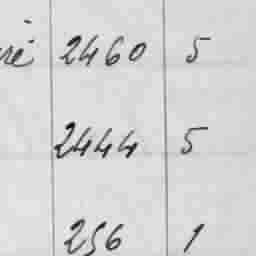 2460 5
2444 5
256 1